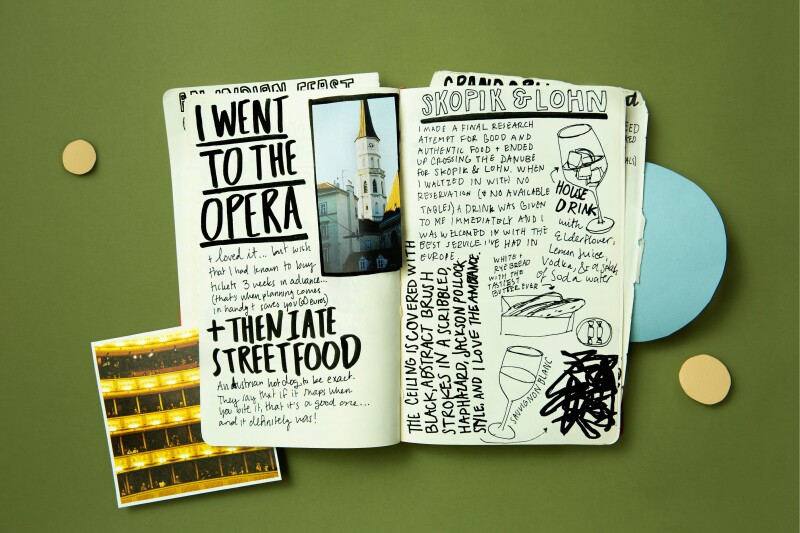 AN INDIAN FEAST
I WENT
TO THE
OPERA
+ loved it... but wish
that I had known to buy
tickets 3 weeks in advance...
(that's when planning comes
in handy + saves you 60 Euros)
+ THEN I ATE
STREETFOOD
An Austrian hot dog, to be exact.
They say that if it snaps when
you bite it, that it's a good one...
and it definitely was!
SKOPIK & LOHN
I MADE A FINAL RESEARCH
ATTEMPT FOR GOOD AND
AUTHENTIC FOOD + ENDED
UP CROSSING THE DANUBE
FOR SKOPIK & LOHN. WHEN
I WALTZED IN WITH NO
RESERVATION (+ NO AVAILABLE
TABLES) A DRINK WAS GIVEN
TO ME IMMEDIATELY AND I
WAS WELCOMED IN WITH THE
BEST SERVICE I'VE HAD IN
EUROPE.
HOUSE
DRINK
with
Elderflower,
Lemon Juice,
Vodka, & a splash
of Soda water
WHITE +
RYE BREAD
WITH THE
TASTIEST
BUTTER EVER
THE CEILING IS COVERED WITH
BLACK, ABSTRACT BRUSH
STROKES IN A SCRIBBLED,
HAPHAZARD, JACKSON POLLOCK
STYLE, AND I LOVE THE AMBIANCE.
SAUVIGNON BLANC